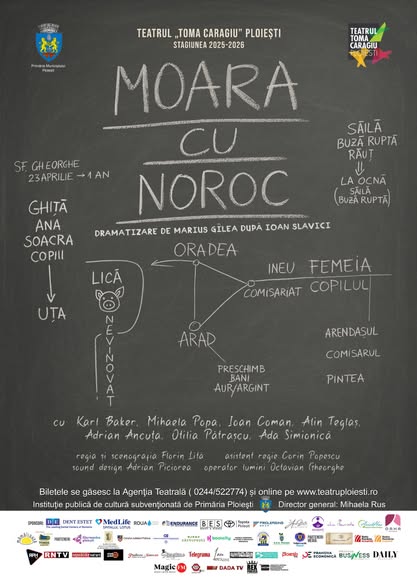 TEATRUL „TOMA CARAGIU” PLOIEȘTI
STAGIUNEA 2025-2026
Primăria Municipiului
Ploiești
TEATRUL
TOMA
CARAGIU
PLOIEȘTI
MOARA
CU
NOROC
DRAMATIZARE DE MARIUS GÎLEA DUPĂ IOAN SLAVICI
SF. GHEORGHE
23 APRILIE → 1 AN
GHIȚĂ
ANA
SOACRA
COPIII
UȚA
SĂILĂ
BUZĂ RUPTĂ
RĂUȚ
LA OCNĂ
SĂILĂ
(BUZĂ RUPTĂ)
LICĂ
NEVINOVAT
ORADEA
INEU
COMISARIAT
ARAD
PRESCHIMB
BANI
AUR/ARGINT
FEMEIA
COPILUL
ARENDASUL
COMISARUL
PINTEA
cu Karl Baker, Mihaela Popa, Ioan Coman, Alin Teglaș,
Adrian Ancuța, Otilia Pătrașcu, Ada Simionică
regia si scenografia Florin Liță asistent regie Corin Popescu
sound design Adrian Piciorea operator lumini Octavian Gheorghe
Biletele se găsesc la Agenţia Teatrală ( 0244/522774) și online pe www.teatruploiesti.ro
Instituţie publică de cultură subvenţionată de Primăria Ploiești Director general: Mihaela Rus
SPONSORI:
DENT ESTET
MedLife
ROUA
ENDURANCE
BES
RPH
RNTV
Telegrama
BUSINESS
DAILY
Magic FM
DADA TV